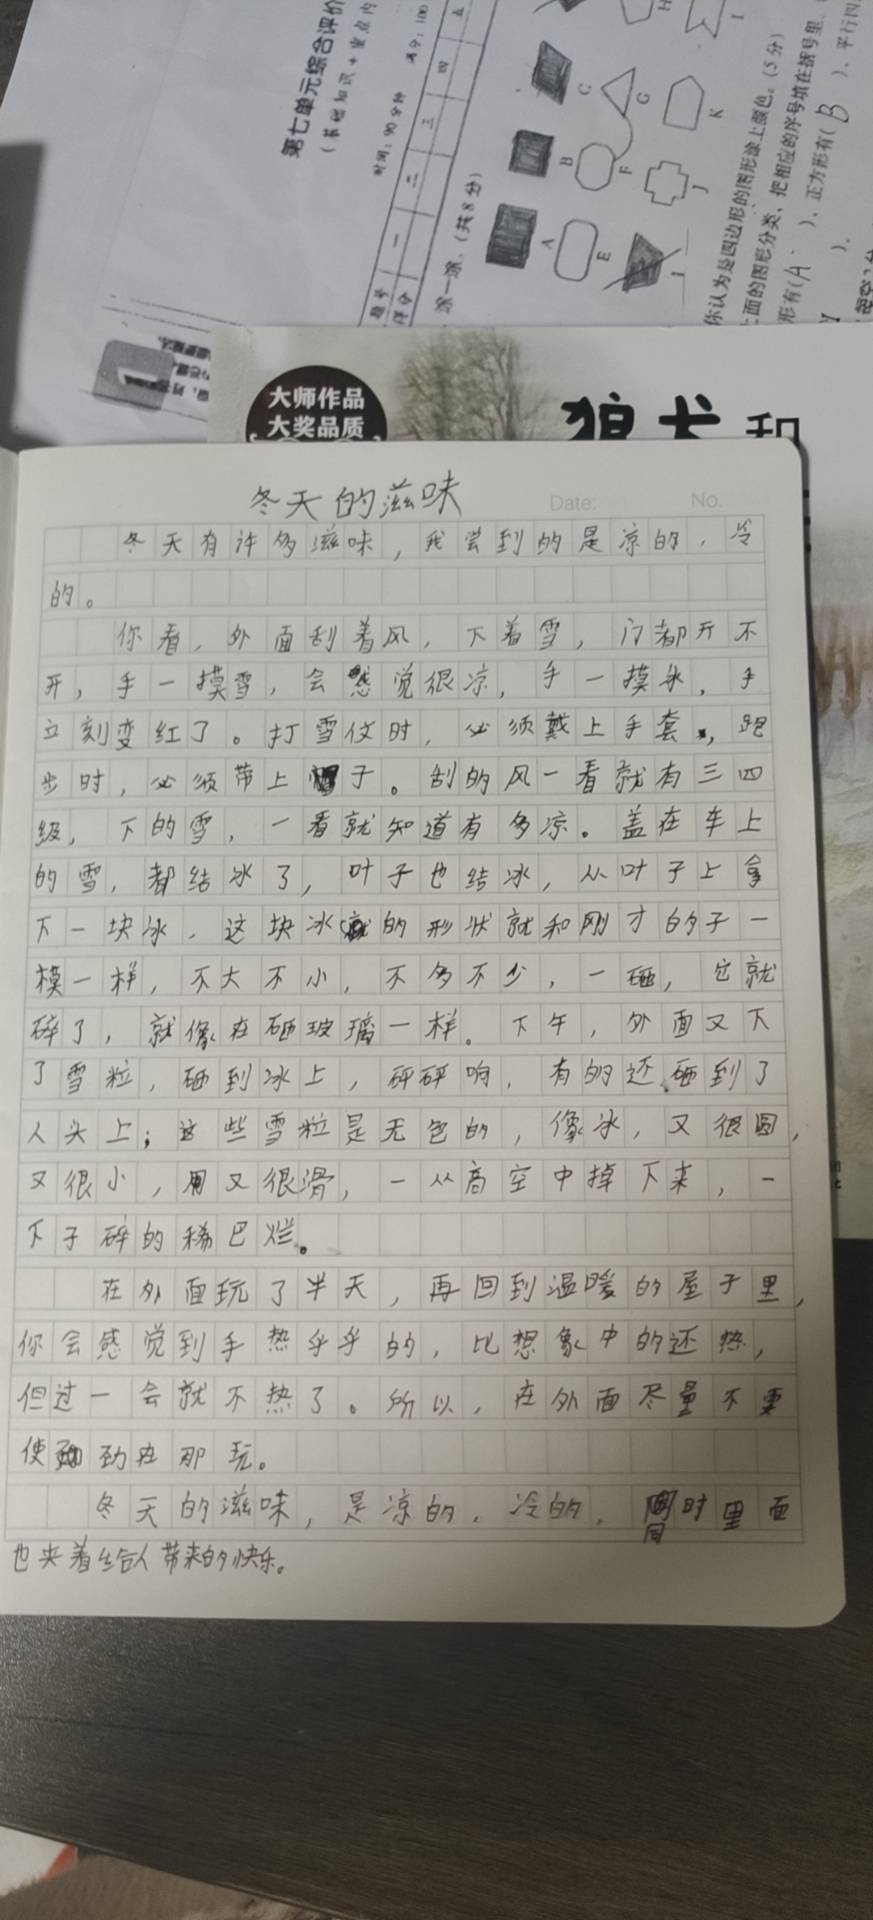 第七单元综合评价
(基础知识+重点内
时间:90分钟 满分:100
题号 一 二 三 四 五
评分
涂一涂。(共8分)
A B C
E F G H I
J K
你认为是四边形的图形涂上颜色。(5分)
面的图形分类,把相应的序号填在括号里。
形有(A ),正方形有( B ),平行四
),
1
大师作品
大奖品质
狼犬和
Date: No.
冬天的滋味
冬天有许多滋味,我尝到的是凉的,冷
的。
你看,外面刮着风,下着雪,门都开不
开,手一摸雪,会感觉很凉,手一摸冰,手
立刻变红了。打雪仗时,必须戴上手套,跑
步时,必须带上帽子。刮的风一看就有三四
级,下的雪,一看就知道有多凉。盖在车上
的雪,都结冰了,叶子也结冰,从叶子上拿
下一块冰,这块冰的形状就和刚才的子一
模一样,不大不小,不多不少,一砸,它就
碎了,就像在砸玻璃一样。下午,外面又下
了雪粒,砸到冰上,砰砰响,有的还砸到了
人头上;这些雪粒是无色的,像冰,又很圆,
又很小,又很滑,一从高空中掉下来,一
下子碎的稀巴烂。
在外面玩了半天,再回到温暖的屋子里,
你会感觉到手热乎乎的,比想象中的还热,
但过一会就不热了。所以,在外面尽量不要
使劲在那玩。
冬天的滋味,是凉的,冷的,同时里面
也夹着给人带来的快乐。